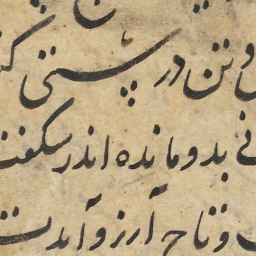 و تن در پستی
بدو مانده اندر شگفت
و تاج آرزو آمدت